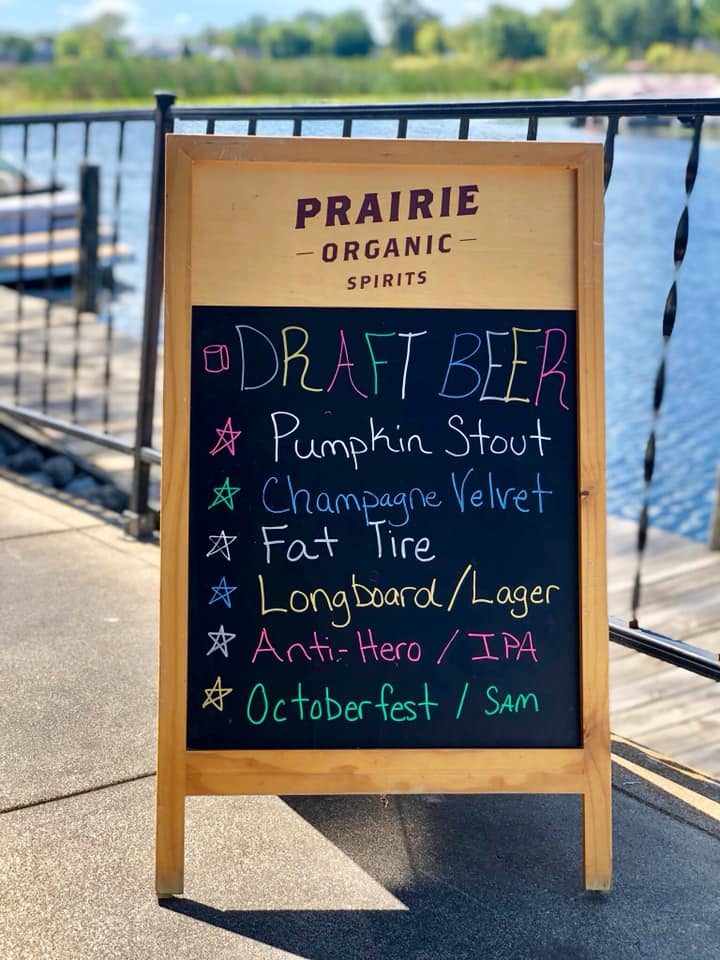 PRAIRIE
- ORGANIC -
SPIRITS
DRAFT BEER
Pumpkin Stout
Champagne Velvet
Fat Tire
Longboard/Lager
Anti-Hero / IPA
Octoberfest / SAM